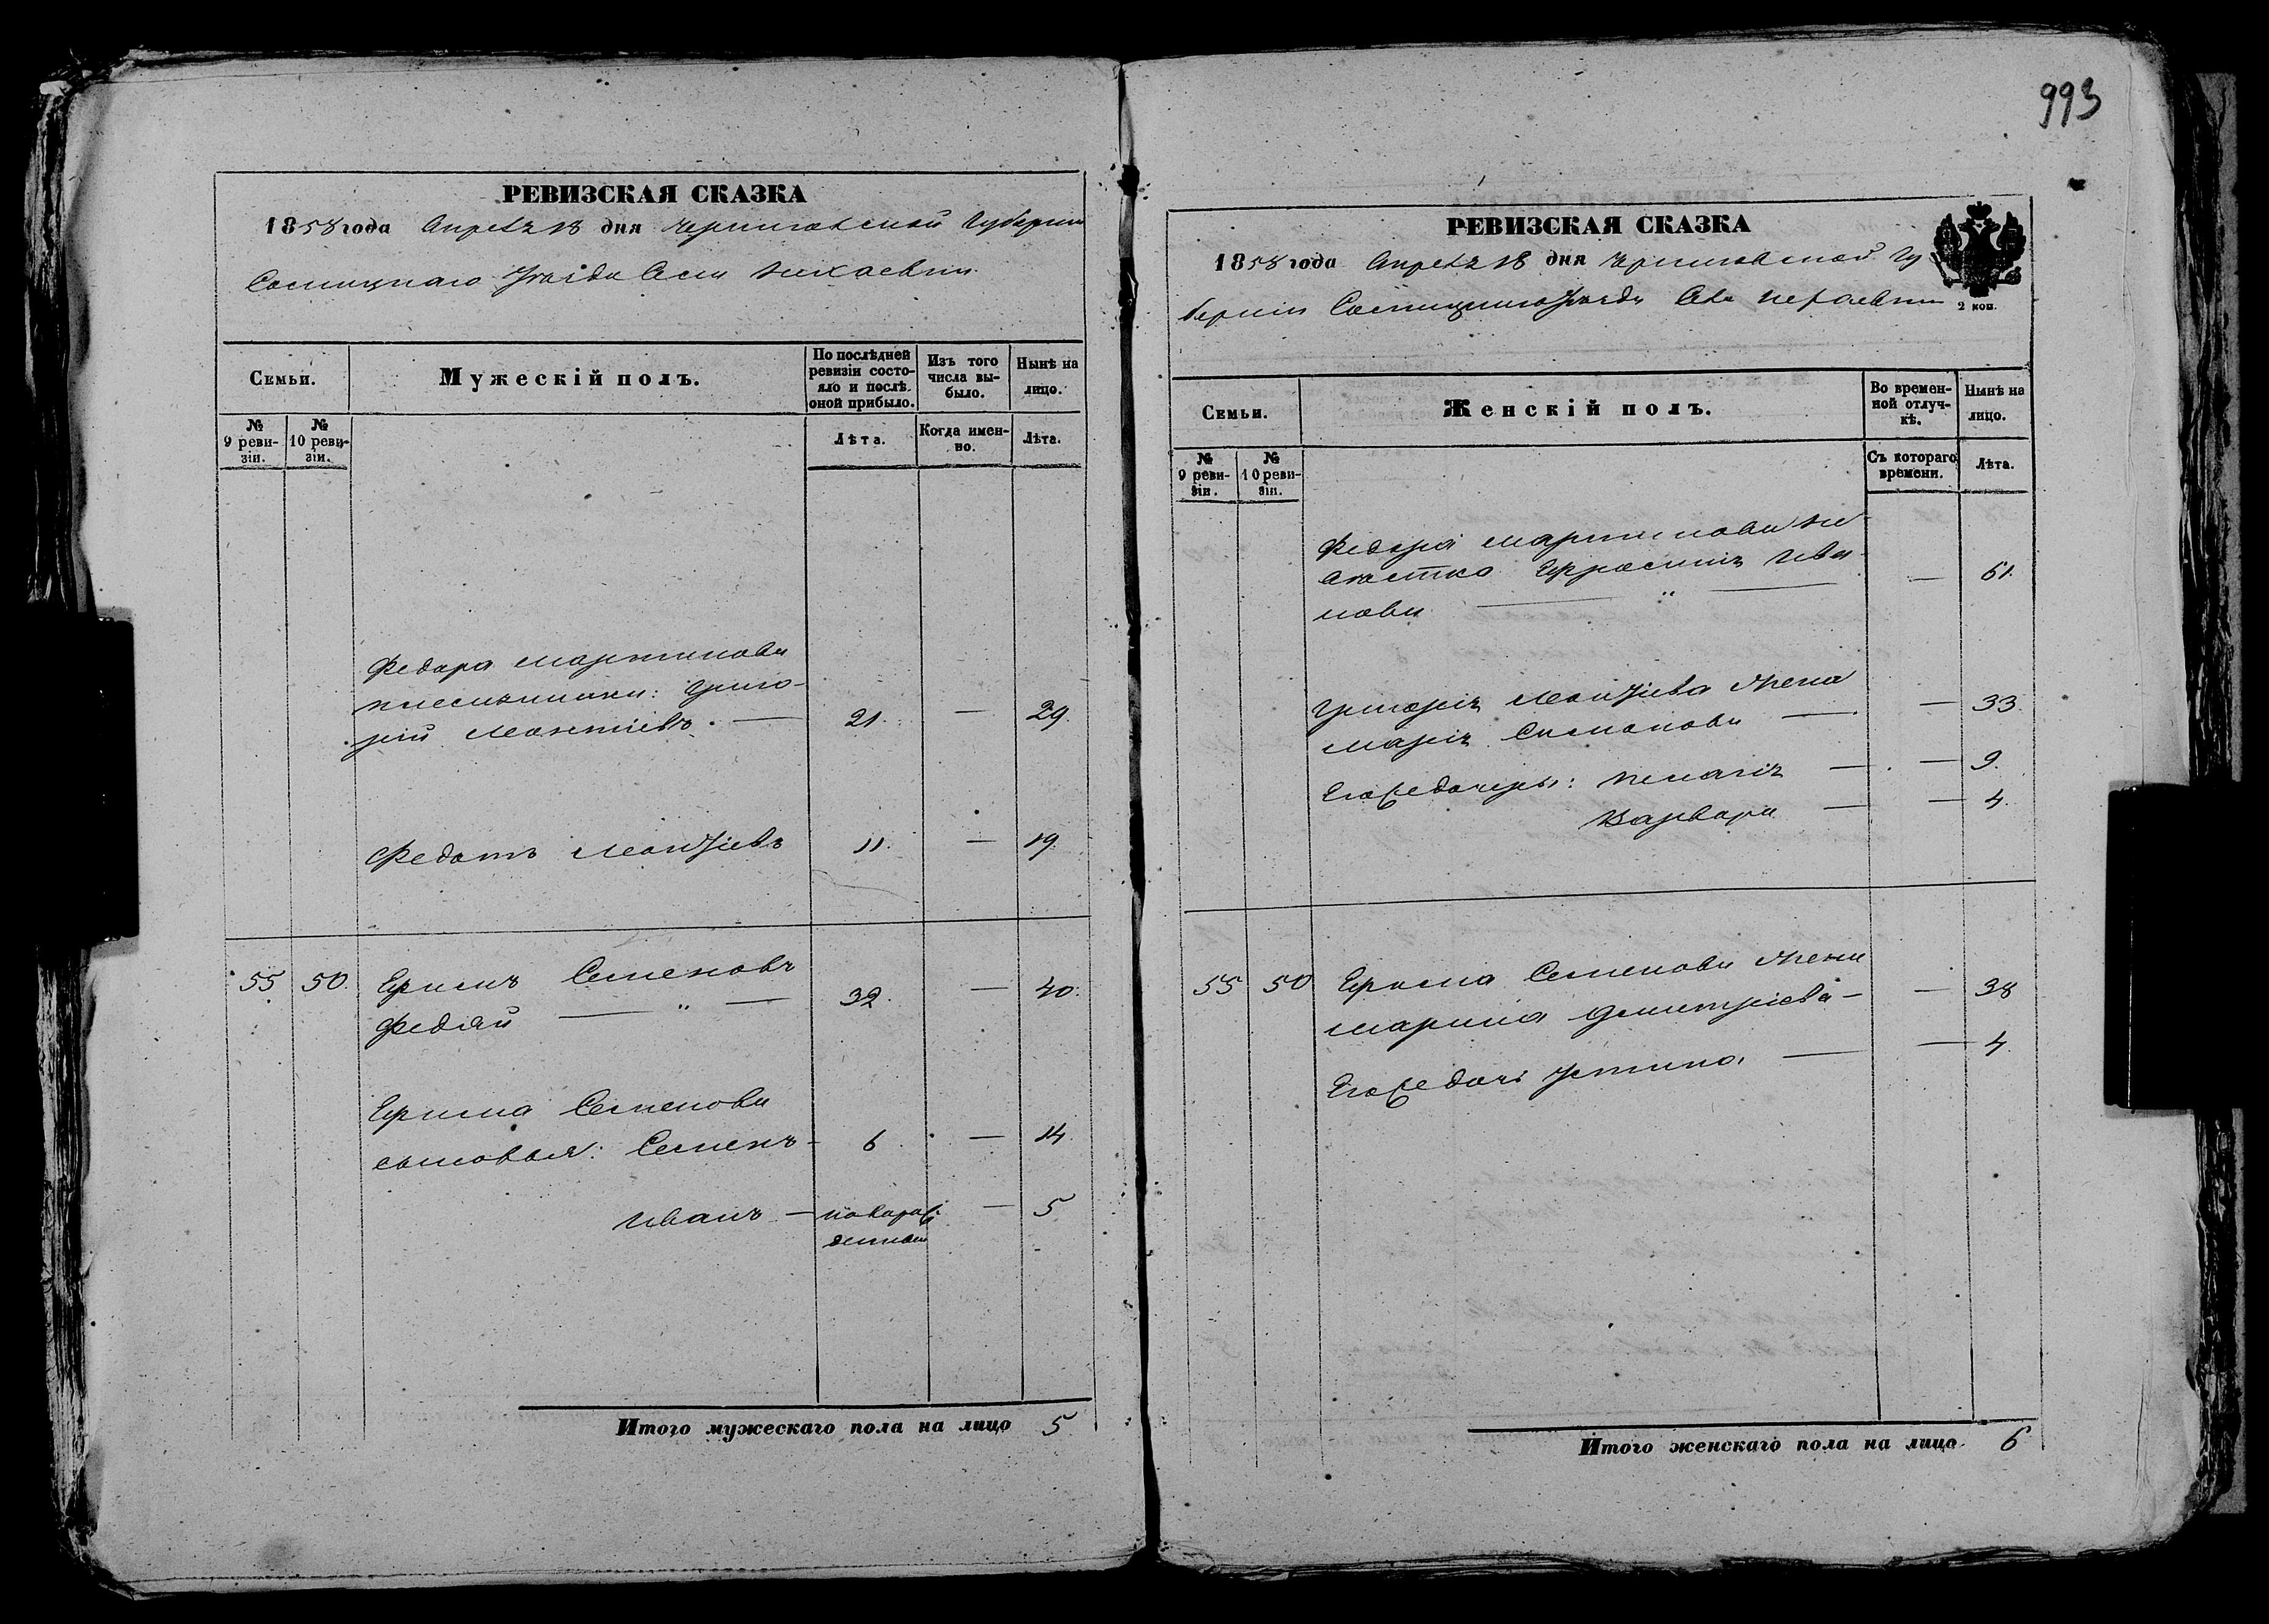 993
РЕВИЗСКАЯ СКАЗКА
1858 года Апреля 18 дня Черниговской Губернии
Сосницкаго Уѣзда Села
Семьи.
Мужескій полъ.
По послѣдней ревизіи состояло и послѣ оной прибыло.
Изъ того числа выбыло.
Нынѣ на лицо.
№ 9 ревизіи.
№ 10 ревизіи.
Лѣта.
Когда именно.
Лѣта.
Федора Мартинова
племянники: Григо-
рій Леонтіевъ. — 21. — 29.
Федотъ Леонтіевъ 11. — 19
55 50. Семеновъ
32. — 40.
Семенова
сыновья: Семенъ - 6 — 14.
Иванъ — новорож
денный — 5
Итого мужескаго пола на лицо 5
РЕВИЗСКАЯ СКАЗКА
1858 года Апреля 18 дня Черниговской Гу
берніи Сосницкаго Уѣзда Села
2 коп.
Семьи.
Женскій полъ.
Во временной отлучкѣ.
Нынѣ на лицо.
№ 9 ревизіи.
№ 10 ревизіи.
Съ котораго времени.
Лѣта.
Федора Мартинова не
вѣстка Ива
нова — " — — 61.
Григорія Леонтіева жена
Марія Симонова — — 33.
Его дочери: Пелагія — — 9.
Варвара — — 4.
55 50 Семенова жена
Марина Дмитріева — — 38
Его дочь Устина — — 4.
Итого женскаго пола на лицо. 6